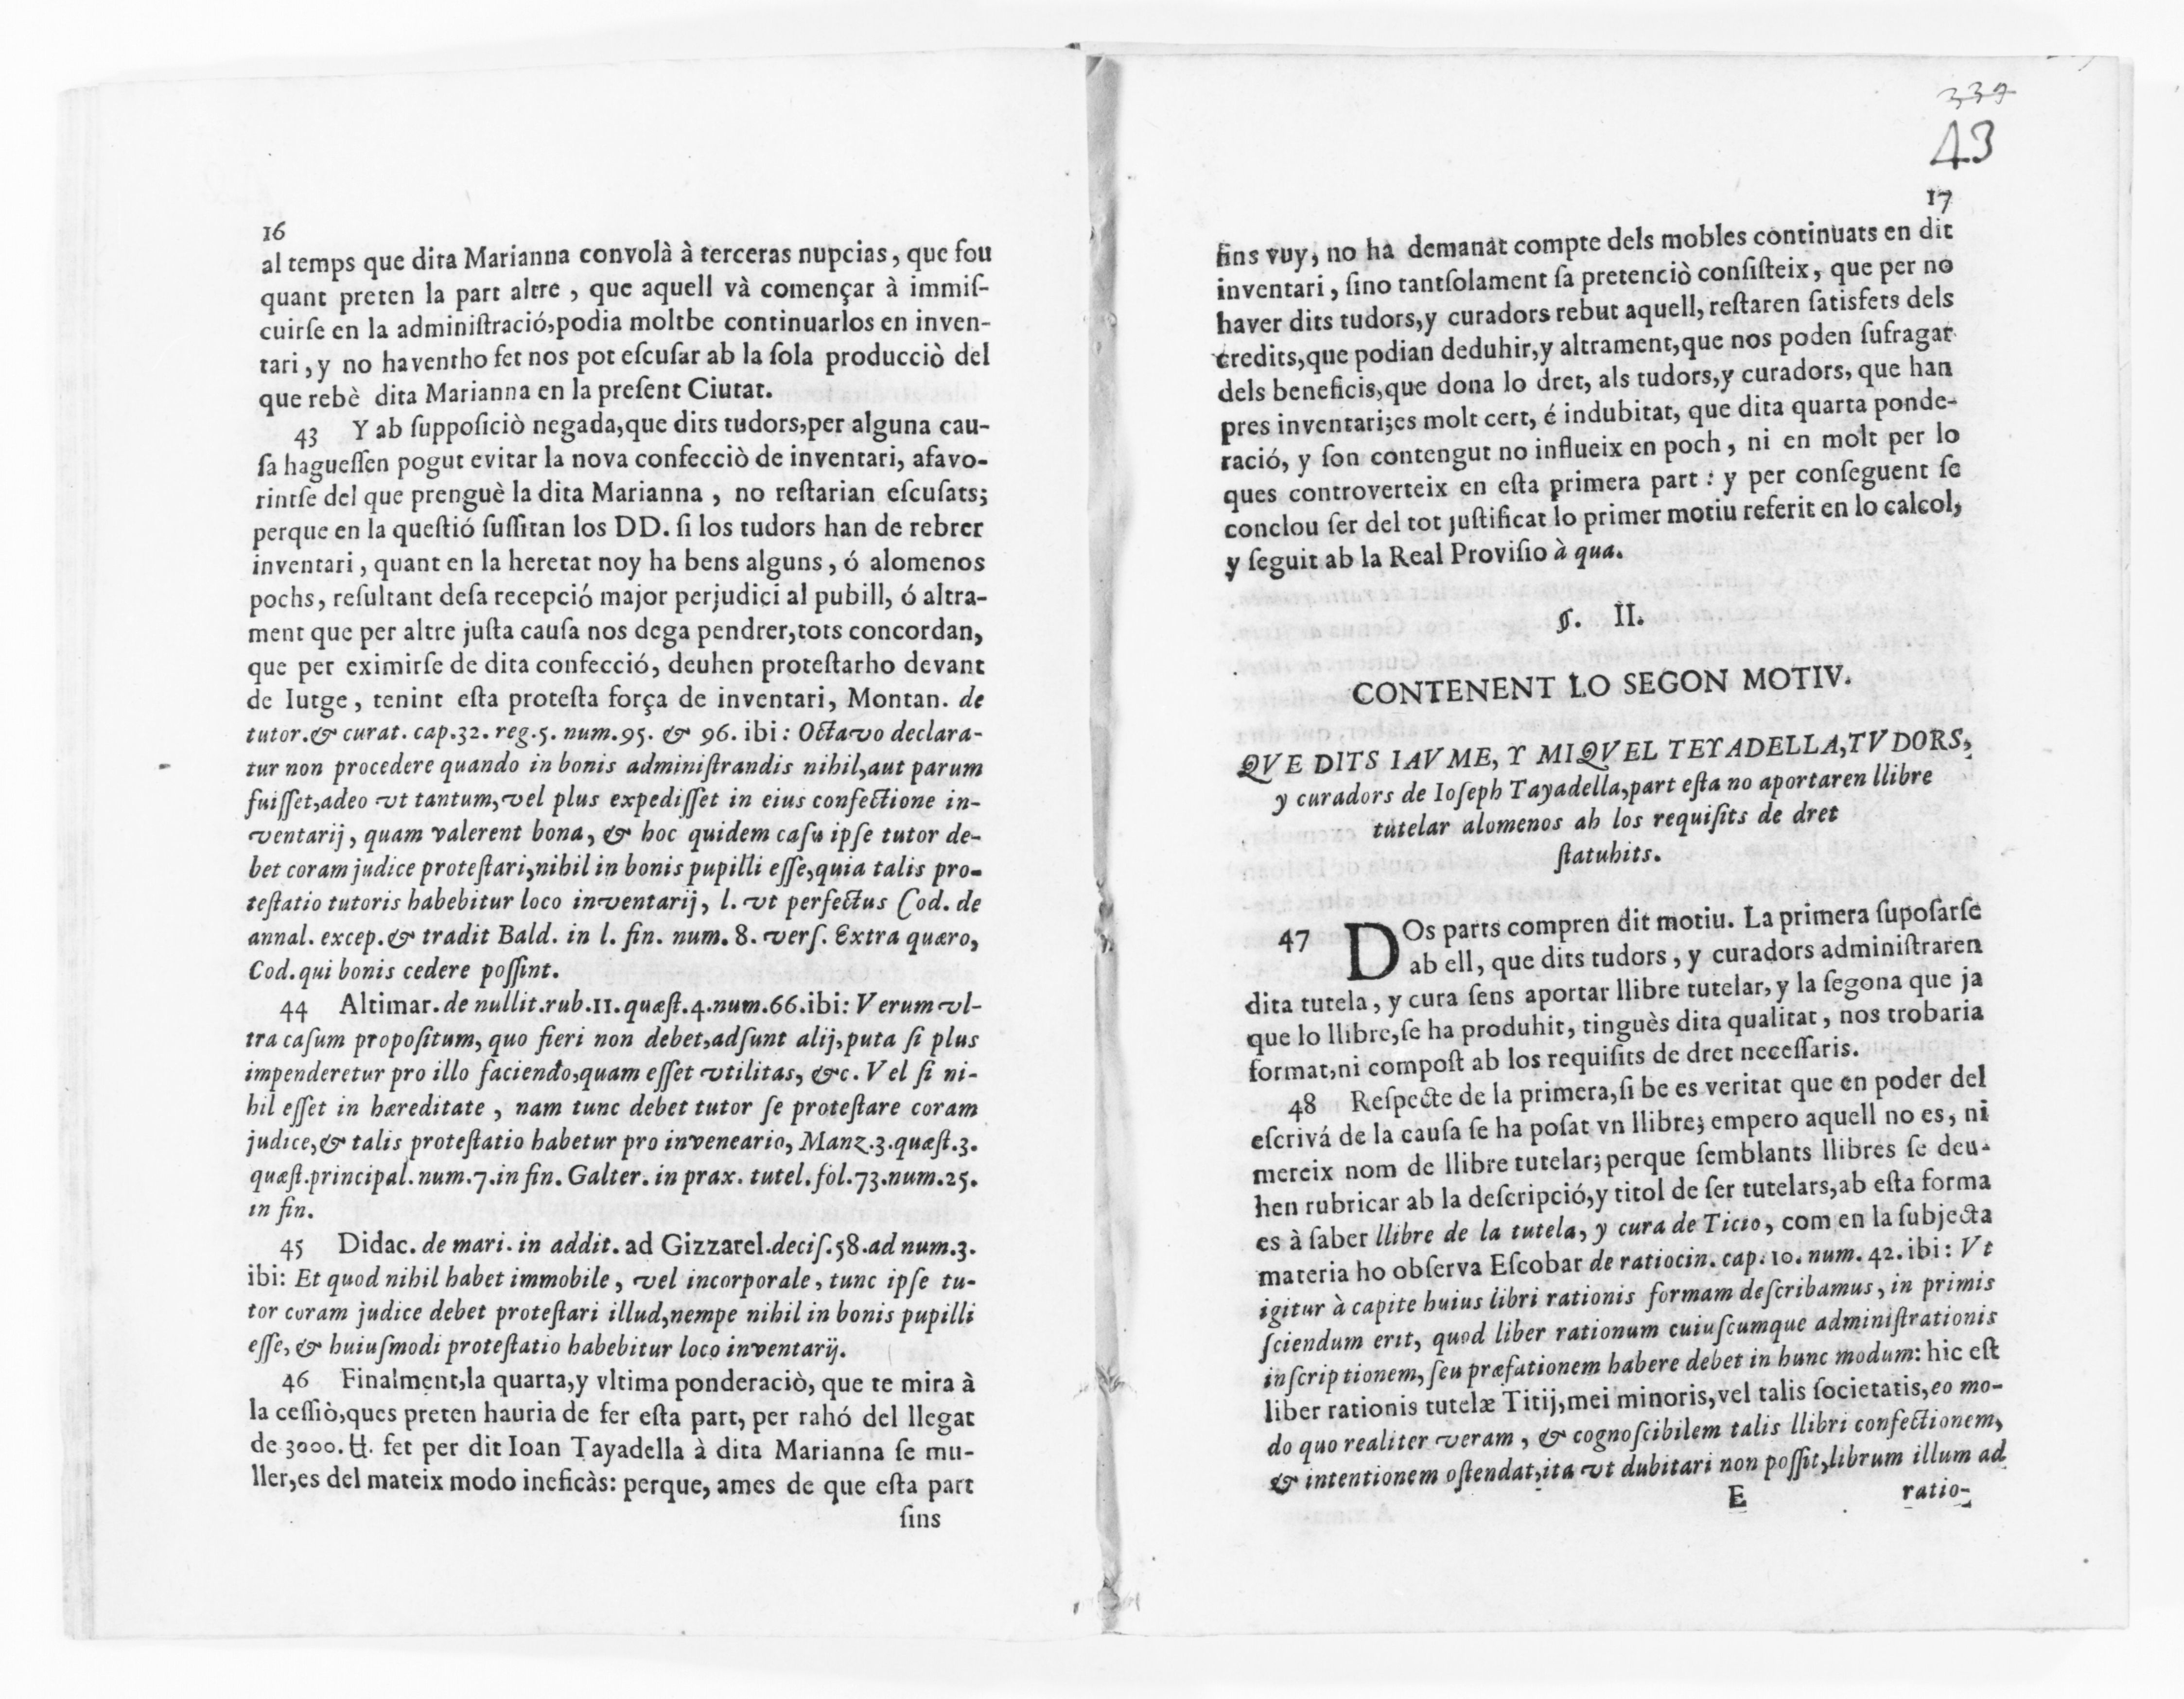 16
al temps que dita Marianna convolà à terceras nupcias, que fou
quant preten la part altre, que aquell và començar à immiſ-
cuirſe en la adminiſtració, podia moltbe continuarlos en inven-
tari, y no haventho fet nos pot eſcuſar ab la ſola producciò del
que rebè dita Marianna en la preſent Ciutat.
43 Y ab ſuppoſiciò negada, que dits tudors, per alguna cau-
ſa hagueſſen pogut evitar la nova confecciò de inventari, afavo-
rintſe del que prenguè la dita Marianna, no reſtarian eſcuſats;
perque en la queſtió ſuſſitan los DD. ſi los tudors han de rebrer
inventari, quant en la heretat noy ha bens alguns, ó alomenos
pochs, reſultant deſa recepció major perjudici al pubill, ó altra-
ment que per altre juſta cauſa nos dega pendrer, tots concordan,
que per eximirſe de dita confecció, deuhen proteſtarho devant
de Iutge, tenint eſta proteſta força de inventari, Montan. de
tutor. & curat. cap. 32. reg. 5. num. 95. & 96. ibi: Octavo declara-
tur non procedere quando in bonis adminiſtrandis nihil, aut parum
fuiſſet, adeo vt tantum, vel plus expediſſet in eius confectione in-
ventarij, quam valerent bona, & hoc quidem caſu ipſe tutor de-
bet coram judice proteſtari, nihil in bonis pupilli eſſe, quia talis pro-
teſtatio tutoris habebitur loco inventarij, l. vt perfectus Cod. de
annal. excep. & tradit Bald. in l. fin. num. 8. verſ. Extra quæro,
Cod. qui bonis cedere poſſint.
44 Altimar. de nullit. rub. 11. quæſt. 4. num. 66. ibi: Verum vl-
tra caſum propoſitum, quo fieri non debet, adſunt alij, puta ſi plus
impenderetur pro illo faciendo, quam eſſet vtilitas, &c. Vel ſi ni-
hil eſſet in hæreditate, nam tunc debet tutor ſe proteſtare coram
judice, & talis proteſtatio habetur pro inveneario, Manz. 3. quæſt. 3.
quæſt. principal. num. 7. in fin. Galter. in prax. tutel. fol. 73. num. 25.
in fin.
45 Didac. de mari. in addit. ad Gizzarel. deciſ. 58. ad num. 3.
ibi: Et quod nihil habet immobile, vel incorporale, tunc ipſe tu-
tor coram judice debet proteſtari illud, nempe nihil in bonis pupilli
eſſe, & huiuſmodi proteſtatio habebitur loco inventarij.
46 Finalment, la quarta, y vltima ponderaciò, que te mira à
la ceſſiò, ques preten hauria de fer eſta part, per rahó del llegat
de 3000. ₶. fet per dit Ioan Tayadella à dita Marianna ſe mu-
ller, es del mateix modo ineficàs: perque, ames de que eſta part
fins
339
43
17
fins vuy, no ha demanat compte dels mobles continuats en dit
inventari, ſino tantſolament ſa pretenciò conſiſteix, que per no
haver dits tudors, y curadors rebut aquell, reſtaren ſatisfets dels
credits, que podian deduhir, y altrament, que nos poden ſufragar
dels beneficis, que dona lo dret, als tudors, y curadors, que han
pres inventari; es molt cert, é indubitat, que dita quarta ponde-
ració, y ſon contengut no influeix en poch, ni en molt per lo
ques controverteix en eſta primera part: y per conſeguent ſe
conclou ſer del tot juſtificat lo primer motiu referit en lo calcol,
y ſeguit ab la Real Proviſio à qua.
§. II.
CONTENENT LO SEGON MOTIV.
QVE DITS IAVME, Y MIQVEL TEYADELLA, TVDORS,
y curadors de Ioſeph Tayadella, part eſta no aportaren llibre
tutelar alomenos ab los requiſits de dret
ſtatuhits.
47 DOs parts compren dit motiu. La primera ſupoſarſe
ab ell, que dits tudors, y curadors adminiſtraren
dita tutela, y cura ſens aportar llibre tutelar, y la ſegona que ja
que lo llibre, ſe ha produhit, tinguès dita qualitat, nos trobaria
format, ni compoſt ab los requiſits de dret neceſſaris.
48 Reſpecte de la primera, ſi be es veritat que en poder del
eſcrivá de la cauſa ſe ha poſat vn llibre; empero aquell no es, ni
mereix nom de llibre tutelar; perque ſemblants llibres ſe deu-
hen rubricar ab la deſcripció, y titol de ſer tutelars, ab eſta forma
es à ſaber llibre de la tutela, y cura de Ticio, com en la ſubjecta
materia ho obſerva Eſcobar de ratiocin. cap. 10. num. 42. ibi: Vt
igitur à capite huius libri rationis formam deſcribamus, in primis
ſciendum erit, quod liber rationum cuiuſcumque adminiſtrationis
inſcriptionem, ſeu præfationem habere debet in hunc modum: hic eſt
liber rationis tutelæ Titij, mei minoris, vel talis ſocietatis, eo mo-
do quo realiter veram, & cognoſcibilem talis llibri confectionem,
& intentionem oſtendat, ita vt dubitari non poſſit, librum illum ad
E ratio-